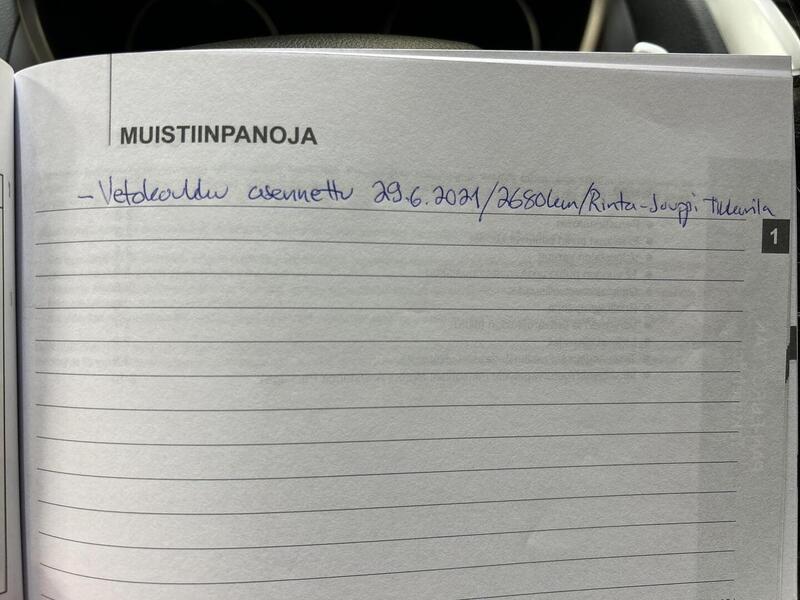 MUISTIINPANOJA
- Vetokoukku asennettu 29.6.2021/2680km/Rinta-Jouppi Tikkurila
1